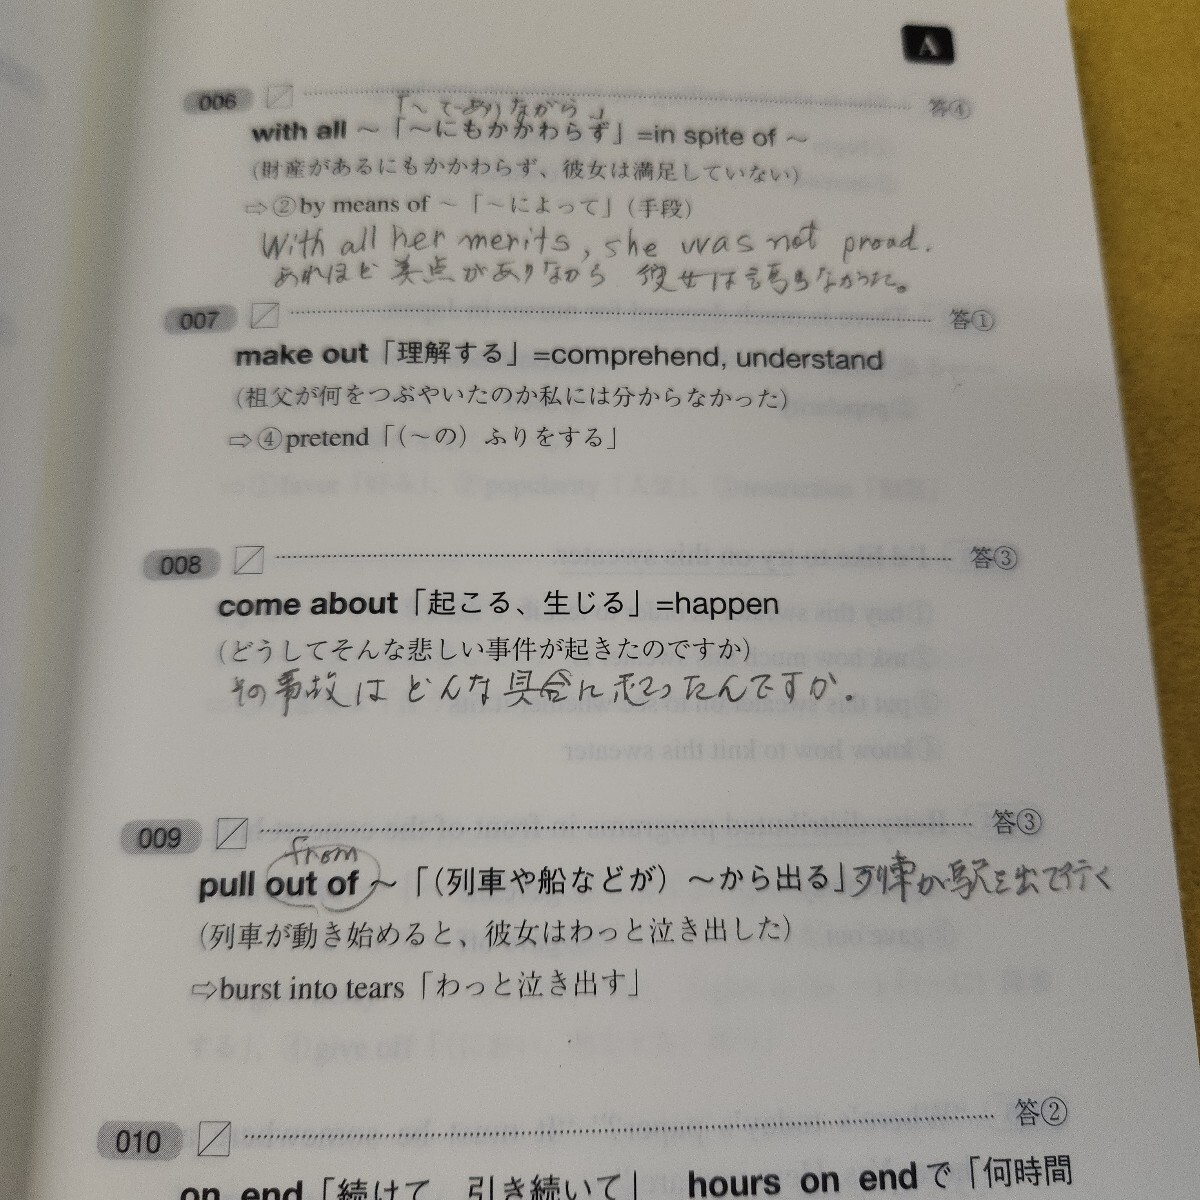 A
006 答④
「～でありながら」
with all ～「～にもかかわらず」=in spite of ～
(財産があるにもかかわらず、彼女は満足していない)
⇨②by means of ～「～によって」(手段)
With all her merits, she was not proad.
あれほど美点がありながら 彼女は誇らなかった。
007 答①
make out「理解する」=comprehend, understand
(祖父が何をつぶやいたのか私には分からなかった)
⇨④pretend「(～の)ふりをする」
008 答③
come about「起こる、生じる」=happen
(どうしてそんな悲しい事件が起きたのですか)
その事故はどんな具合に起こったんですか.
009 答③
from
pull out of ～「(列車や船などが)～から出る」列車が駅を出て行く
(列車が動き始めると、彼女はわっと泣き出した)
⇨burst into tears「わっと泣き出す」
010 答②
on end「続けて、引き続いて」 hours on endで「何時間